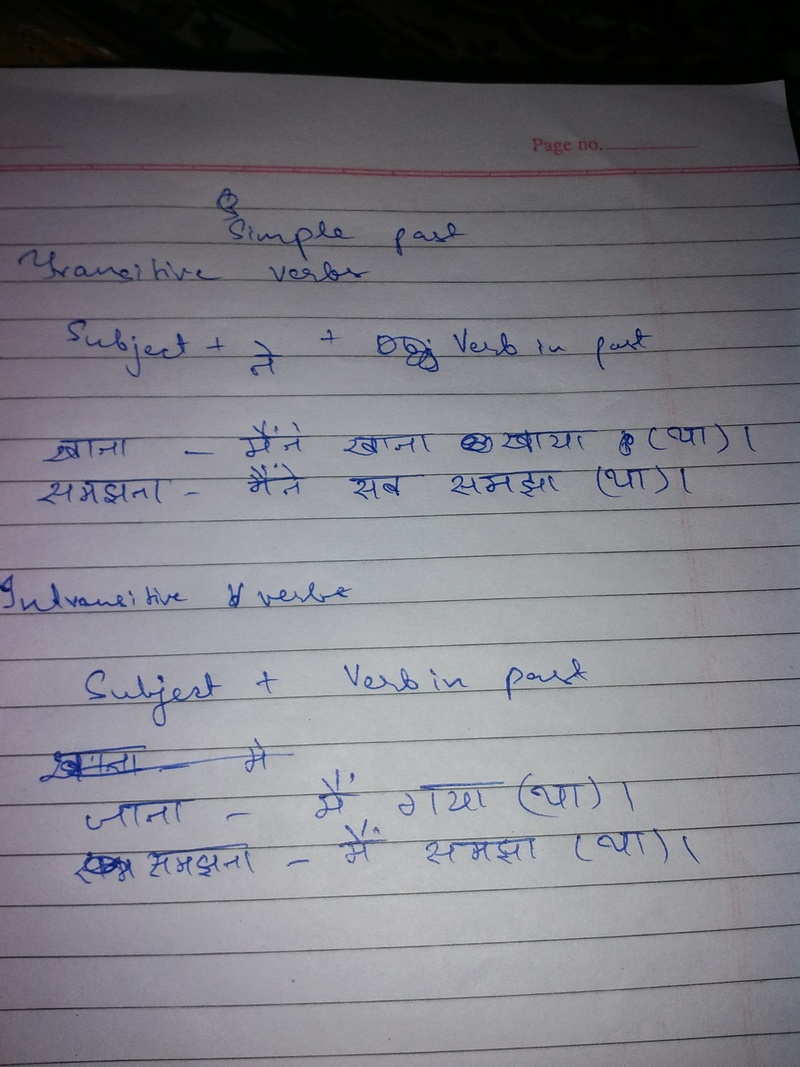 Page no.
Simple past
Transitive verbs
Subject + ने + Verb in past
खाना - मैंने खाना खाया (था)।
समझना - मैंने सब समझा (था)।
Intransitive verbs
Subject + Verb in past
खाना - मे
जाना - मैं गया (था)।
समझना - मैं समझा (था)।